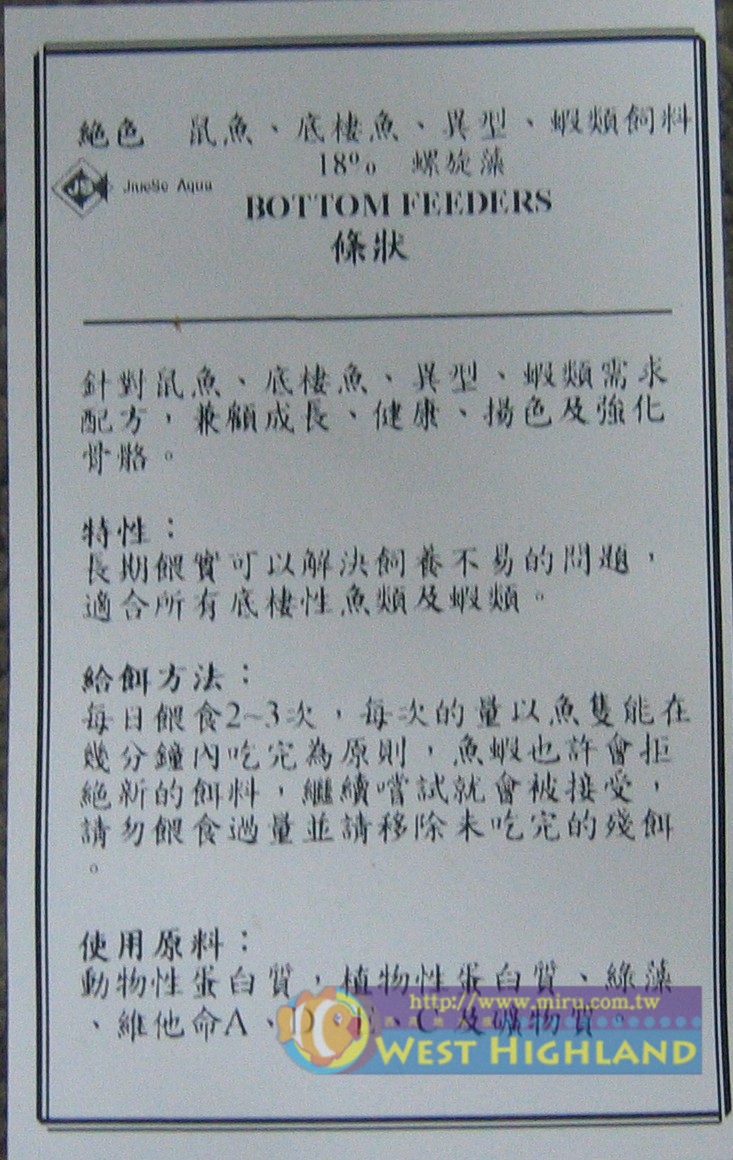 絕色 鼠魚、底棲魚、異型、蝦類飼料
18% 螺旋藻
JiueSe Aqua
BOTTOM FEEDERS
條狀
針對鼠魚、底棲魚、異型、蝦類需求
配方，兼顧成長、健康、揚色及強化
骨骼。
特性：
長期餵實可以解決飼養不易的問題，
適合所有底棲性魚類及蝦類。
給餌方法：
每日餵食2~3次，每次的量以魚隻能在
幾分鐘內吃完為原則，魚蝦也許會拒
絕新的餌料，繼續嚐試就會被接受，
請勿餵食過量並請移除未吃完的殘餌
。
使用原料：
動物性蛋白質，植物性蛋白質、綠藻
、維他命A、D、E、C及礦物質。
http://www.miru.com.tw
WEST HIGHLAND